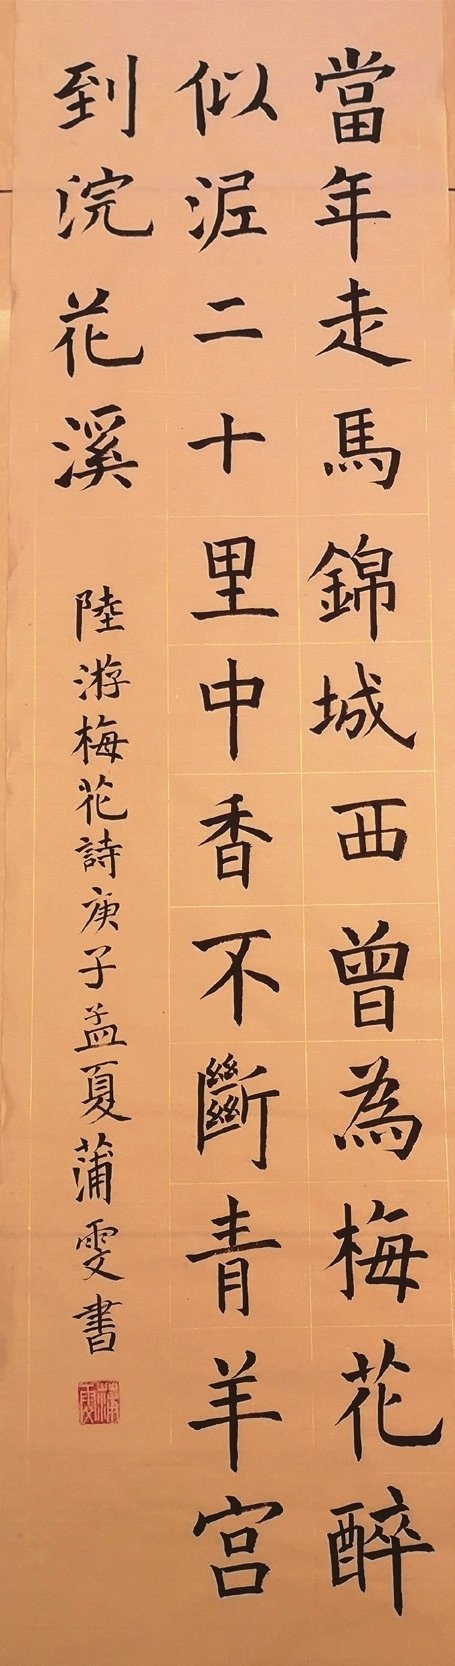 當年走馬錦城西曾為梅花醉
似泥二十里中香不斷青羊宫
到浣花溪
陸游梅花詩庚子孟夏蒲雯書